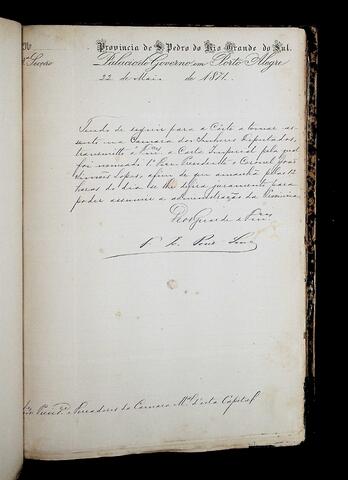 Provincia de S. Pedro do Rio Grande do Sul.
2ª Secção Palacio do Governo em Porto Alegre
22 de Maio de 1871.
Tendo de seguir para a Côrte a tomar as-
sento na Camara dos Senhores Deputados,
transmitto á Vmces a Carta Imperial pela qual
foi nomeado 1º Vice-Presidente o Coronel João
Simões Lopes, afim de que amanhã pelas 12
horas do dia se lhe defira juramento para
poder assumir a administração da Provincia.
Deos Guarde a Vmces
Presidte e Vereadores da Camara Mal d'esta Capital